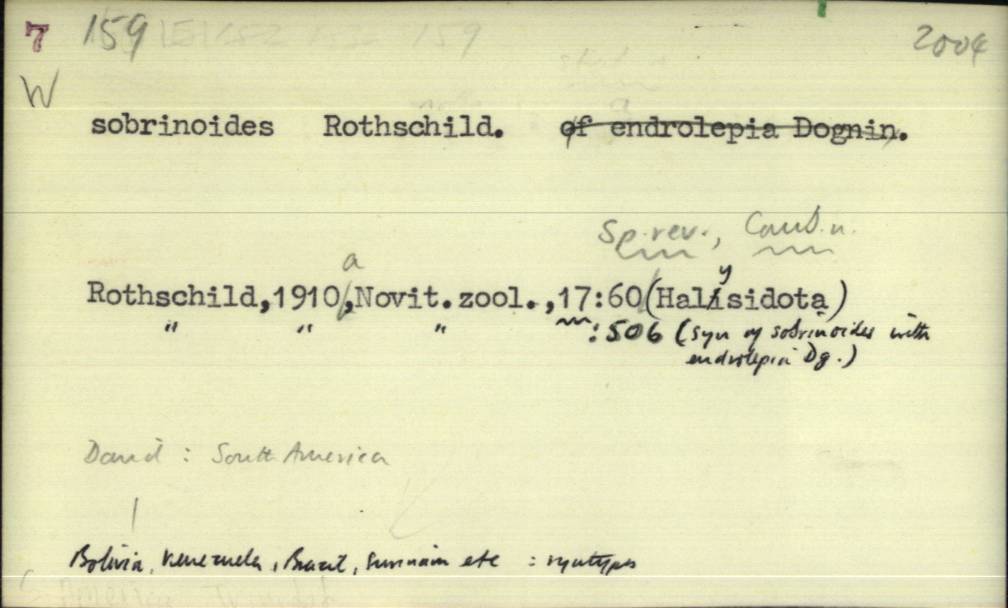 7 159 2004
W
sobrinoides Rothschild. of endrolepia Dognin.
Sp. rev., Comb. n.
a
y
Rothschild,1910,Novit.zool.,17:60(Halisidota)
" " " :506 (syn of sobrinoides with
endrolepia Dg.)
David : South America
Bolivia, Venezuela, Brazil, Surinam etc : syntypes